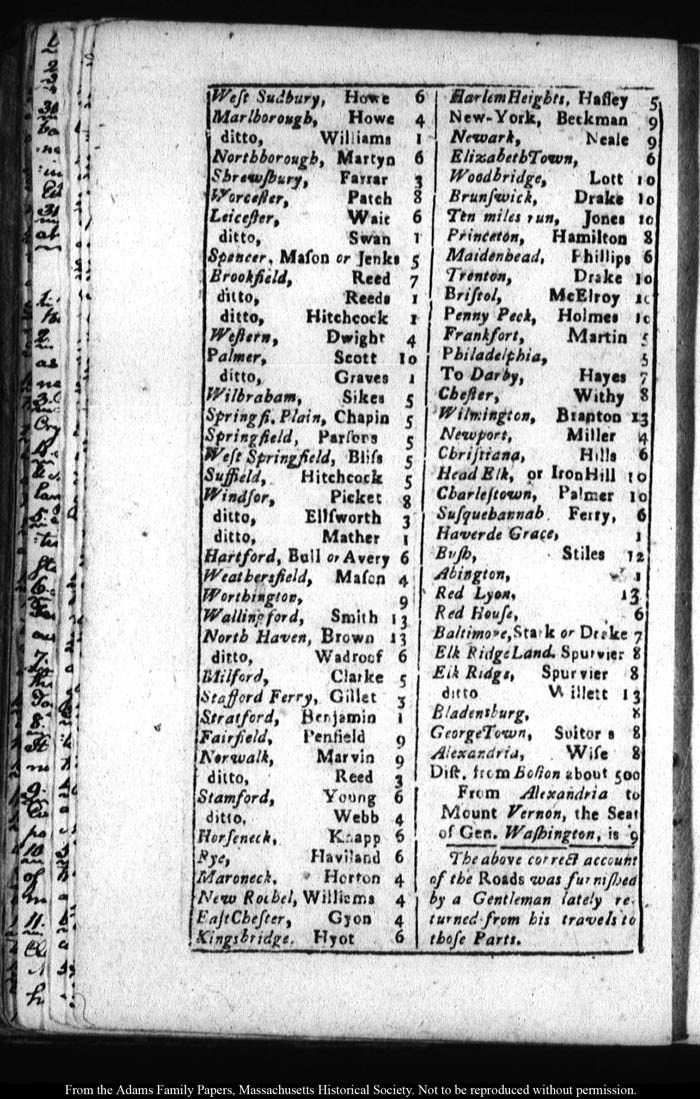 West Sudbury, Howe 6
Marlborough, Howe 4
ditto, Williams 1
Northborough, Martyn 6
Shrewsbury, Farrar 3
Worcester, Patch 8
Leicester, Wait 6
ditto, Swan 1
Spencer, Mason or Jenks 5
Brookfield, Reed 7
ditto, Reeds 1
ditto, Hitchcock 1
Western, Dwight 4
Palmer, Scott 10
ditto, Graves 1
Wilbraham, Sikes 5
Springfi. Plain, Chapin 5
Springfield, Parsons 5
West Springfield, Bliss 5
Suffield, Hitchcock 5
Windsor, Picket 8
ditto, Ellsworth 3
ditto, Mather 1
Hartford, Bull or Avery 6
Weathersfield, Mason 4
Worthington, 9
Wallingford, Smith 13
North Haven, Brown 13
ditto, Wadroof 6
Milford, Clarke 5
Stafford Ferry, Gillet 3
Stratford, Benjamin 1
Fairfield, Penfield 9
Norwalk, Marvin 9
ditto, Reed 3
Stamford, Young 6
ditto, Webb 4
Horseneck, Knapp 6
Rye, Haviland 6
Maroneck, Horton 4
New Rochel, Williams 4
East Chester, Gyon 4
Kingsbridge. Hyot 6
Harlem Heights, Hasley 5
New-York, Beekman 9
Newark, Neale 9
Elizabeth Town, 6
Woodbridge, Lott 10
Brunswick, Drake 10
Ten miles run, Jones 10
Princeton, Hamilton 8
Maidenhead, Phillips 6
Trenton, Drake 10
Bristol, McElroy 10
Penny Peck, Holmes 10
Frankfort, Martin 5
Philadelphia, 5
To Darby, Hayes 7
Chester, Withy 8
Wilmington, Brapton 13
Newport, Miller 4
Christiana, Hills 6
Head Elk, or Iron Hill 10
Charlestown, Palmer 10
Susquehannah Ferry, 6
Haverde Grace, 1
Bush, Stiles 12
Abington, 1
Red Lyon, 13
Red House, 6
Baltimore, Stark or Drake 7
Elk Ridge Land. Spurvier 8
Elk Ridge, Spurvier 8
ditto Willett 13
Bladensburg, 8
George Town, Suitors 8
Alexandria, Wise 8
Dist. from Boston about 500
From Alexandria to
Mount Vernon, the Seat
of Gen. Washington, is 9
The above correct account
of the Roads was furnished
by a Gentleman lately re-
turned from his travels to
those Parts.
From the Adams Family Papers, Massachusetts Historical Society. Not to be reproduced without permission.